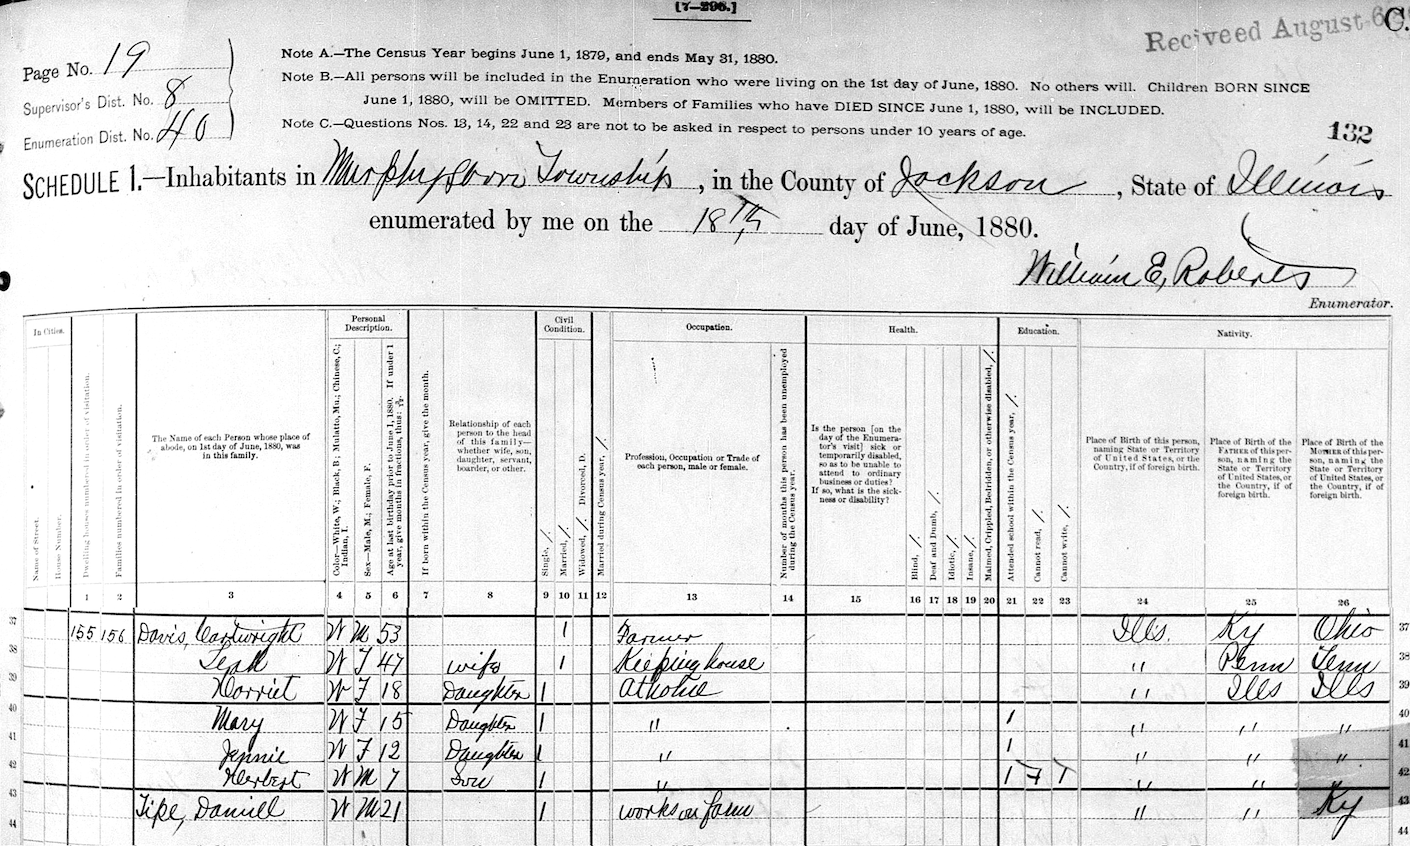 [7-296.]
Reciveed August 6
C.
Page No. 19
Supervisor's Dist. No. 8
Enumeration Dist. No. 40
Note A.—The Census Year begins June 1, 1879, and ends May 31, 1880.
Note B.—All persons will be included in the Enumeration who were living on the 1st day of June, 1880. No others will. Children BORN SINCE
June 1, 1880, will be OMITTED. Members of Families who have DIED SINCE June 1, 1880, will be INCLUDED.
Note C.—Questions Nos. 13, 14, 22 and 23 are not to be asked in respect to persons under 10 years of age.
132
SCHEDULE 1.—Inhabitants in Murphysboro Township, in the County of Jackson, State of Illinois
enumerated by me on the 18th day of June, 1880.
William E, Roberts
Enumerator.
In Cities.
Name of Street.
House Number.
Dwelling houses numbered in order of visitation.
Families numbered in order of visitation.
The Name of each Person whose place of
abode, on 1st day of June, 1880, was
in this family.
Personal
Description.
Color—White, W.; Black, B.; Mulatto, Mu.; Chinese, C.;
Indian, I.
Sex—Male, M.; Female, F.
Age at last birthday prior to June 1, 1880. If under 1
year, give months in fractions, thus: 3/12.
If born within the Census year, give the month.
Relationship of each
person to the head
of this family—
whether wife, son,
daughter, servant,
boarder, or other.
Civil
Condition.
Single, /.
Married, /.
Widowed, /. Divorced, D.
Married during Census year, /.
Occupation.
Profession, Occupation or Trade of
each person, male or female.
Number of months this person has been unemployed
during the Census year.
Health.
Is the person [on the
day of the Enumera-
tor's visit] sick or
temporarily disabled,
so as to be unable to
attend to ordinary
business or duties?
If so, what is the sick-
ness or disability?
Blind, /.
Deaf and Dumb, /.
Idiotic, /.
Insane, /.
Maimed, Crippled, Bedridden, or otherwise disabled, /.
Education.
Attended school within the Census year, /.
Cannot read, /.
Cannot write, /.
Nativity.
Place of Birth of this person,
naming State or Territory
of United States, or the
Country, if of foreign birth.
Place of Birth of the
FATHER of this per-
son, naming the
State or Territory
of United States, or
the Country, if of
foreign birth.
Place of Birth of the
MOTHER of this per-
son, naming the
State or Territory
of United States, or
the Country, if of
foreign birth.
1 2 3 4 5 6 7 8 9 10 11 12 13 14 15 16 17 18 19 20 21 22 23 24 25 26
37 155 156 Davis, Cartwright W M 53 1 Farmer Ills. Ky Ohio 37
38 Leah W F 47 wife 1 Keeping house " Penn Tenn 38
39 Harriet W F 18 Daughter 1 At home " Ills Ills 39
40 Mary W F 15 Daughter 1 " 1 " " " 40
41 Jennie W F 12 Daughter 1 " 1 " " " 41
42 Herbert W M 7 Son 1 " 1 7 7 " " " 42
43 Tipe, Daniell W M 21 1 works on farm " " Ky 43
44 44